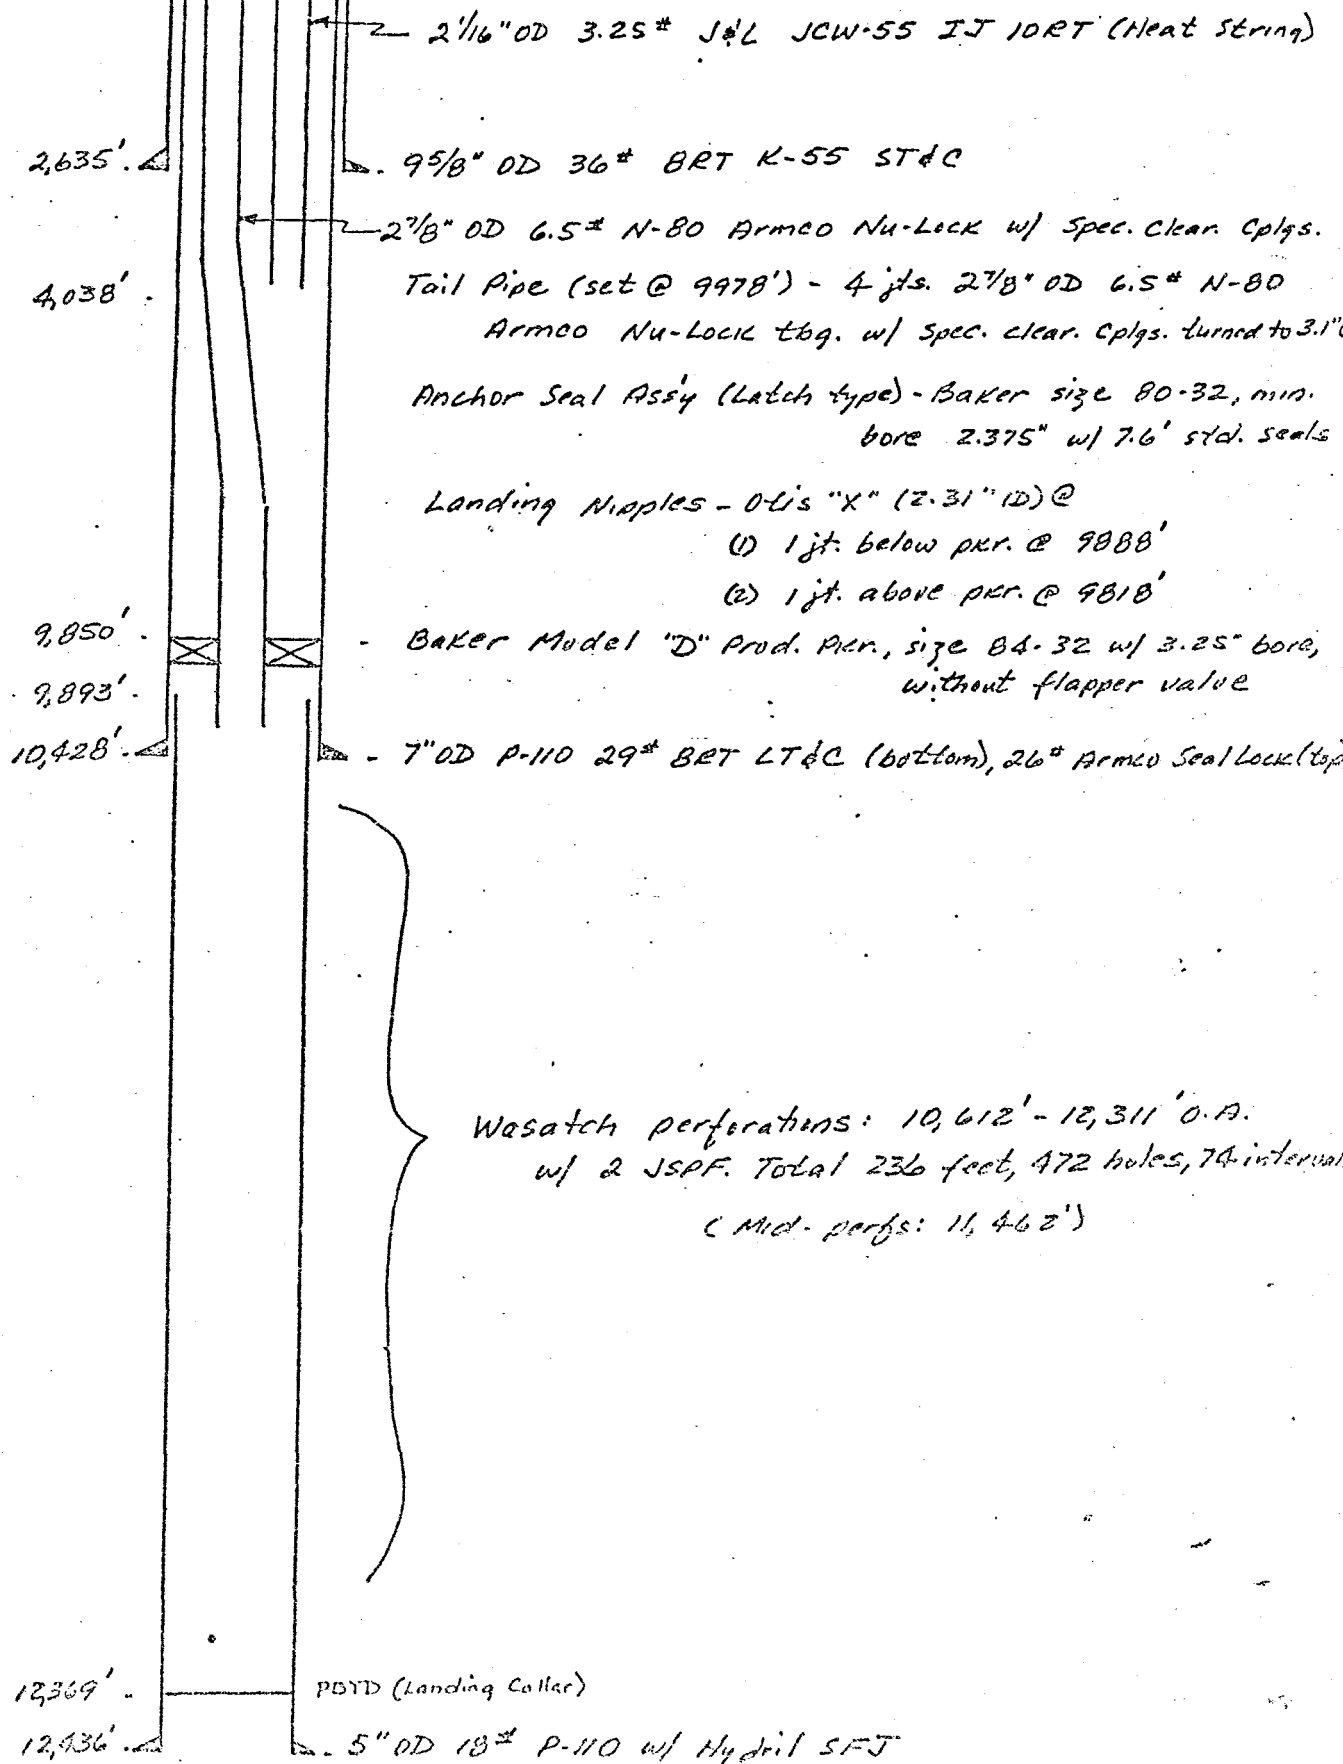 2 1/16" OD 3.25# J&L JCW-55 IJ 10RT (Heat String)
2,635'. 9 5/8" OD 36# 8RT K-55 ST&C
2 7/8" OD 6.5# N-80 Armco Nu-Lock w/ Spec. Clear. Cplgs.
4,038'. Tail Pipe (set @ 9978') - 4 jts. 2 7/8" OD 6.5# N-80
Armco Nu-Lock tbg. w/ Spec. clear. Cplgs. turned to 3.1"
Anchor Seal Ass'y (Latch type) - Baker size 80-32, min.
bore 2.375" w/ 7.6' std. seals
Landing Nipples - Otis "X" (2.31" ID) @
(1) 1 jt. below pkr. @ 9888'
(2) 1 jt. above pkr. @ 9818'
9,850'. - Baker Model "D" Prod. Pkr., size 84-32 w/ 3.25" bore,
9,893'. without flapper valve
10,428'. - 7" OD P-110 29# 8RT LT&C (bottom), 26# Armco Seal Lock (top
Wasatch perforations: 10,612' - 12,311' O.A.
w/ 2 JSPF. Total 236 feet, 472 holes, 74 interval
(Mid-perfs: 11,462')
12,369'. PBTD (Landing Collar)
12,436'. 5" OD 18# P-110 w/ Hydril SFJ